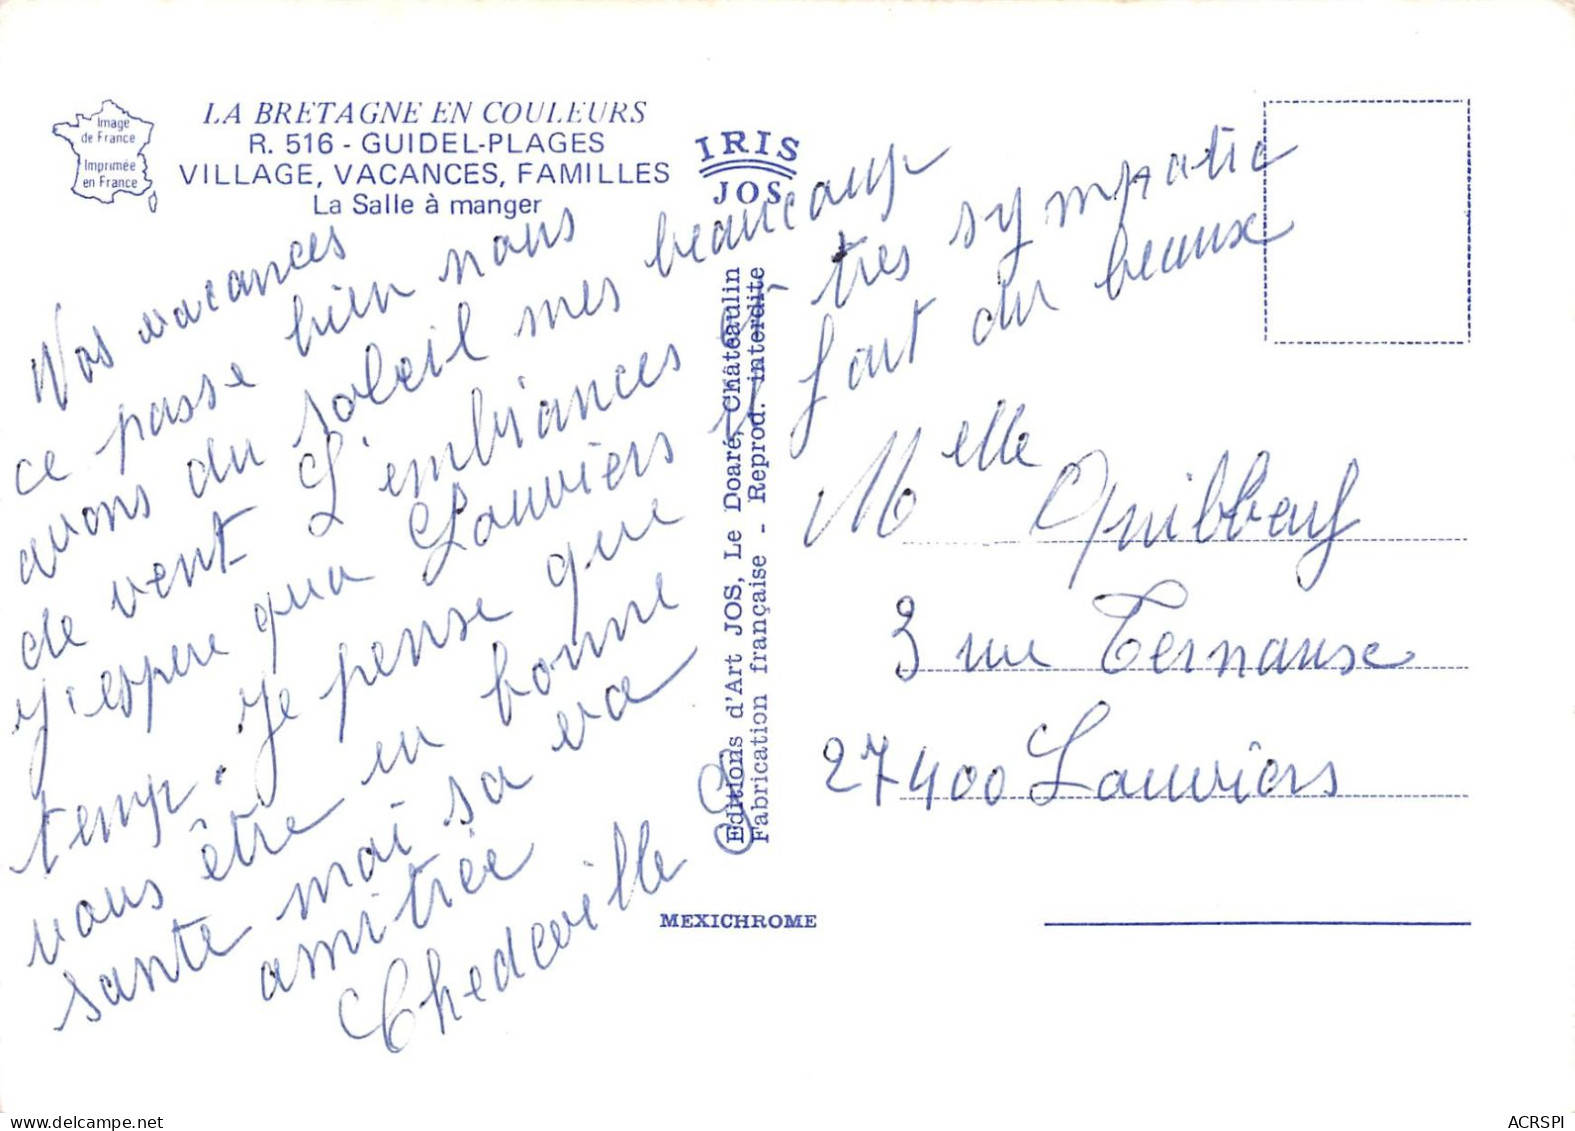 Image
de France
Imprimée
en France
LA BRETAGNE EN COULEURS
R. 516 - GUIDEL-PLAGES
VILLAGE, VACANCES, FAMILLES
La Salle à manger
IRIS
JOS
Nos vacances
ce passe bien nous
avons du soleil mes beaucoup
de vent L'embiances très sympatic
j'espere qua Louviers il fait du beaux
temp. Je pense que
vous être en bonne
santé moi sa va
amitiée
Chedeville G
Editions d'Art JOS, Le Doaré, Châteaulin
Fabrication française - Reprod. interdite
MEXICHROME
Melle Quibbeuf
3 rue Ternause
27400 Louviers
ACRSPI